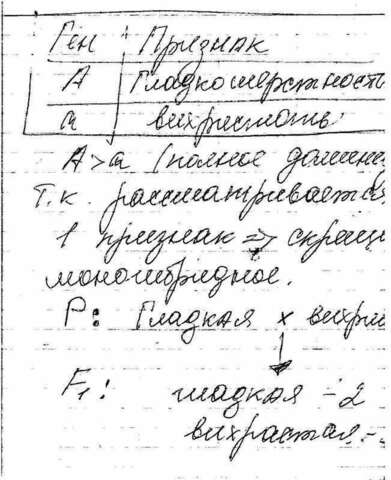 Ген Признак
А Гладкошерстность
а вихрастость
А>а (полное домине
Т.к. рассматривается
1 признак => скрещ
моногибридное.
Р: Гладкая x вихра
F1: гладкая - 2
вихрастая -